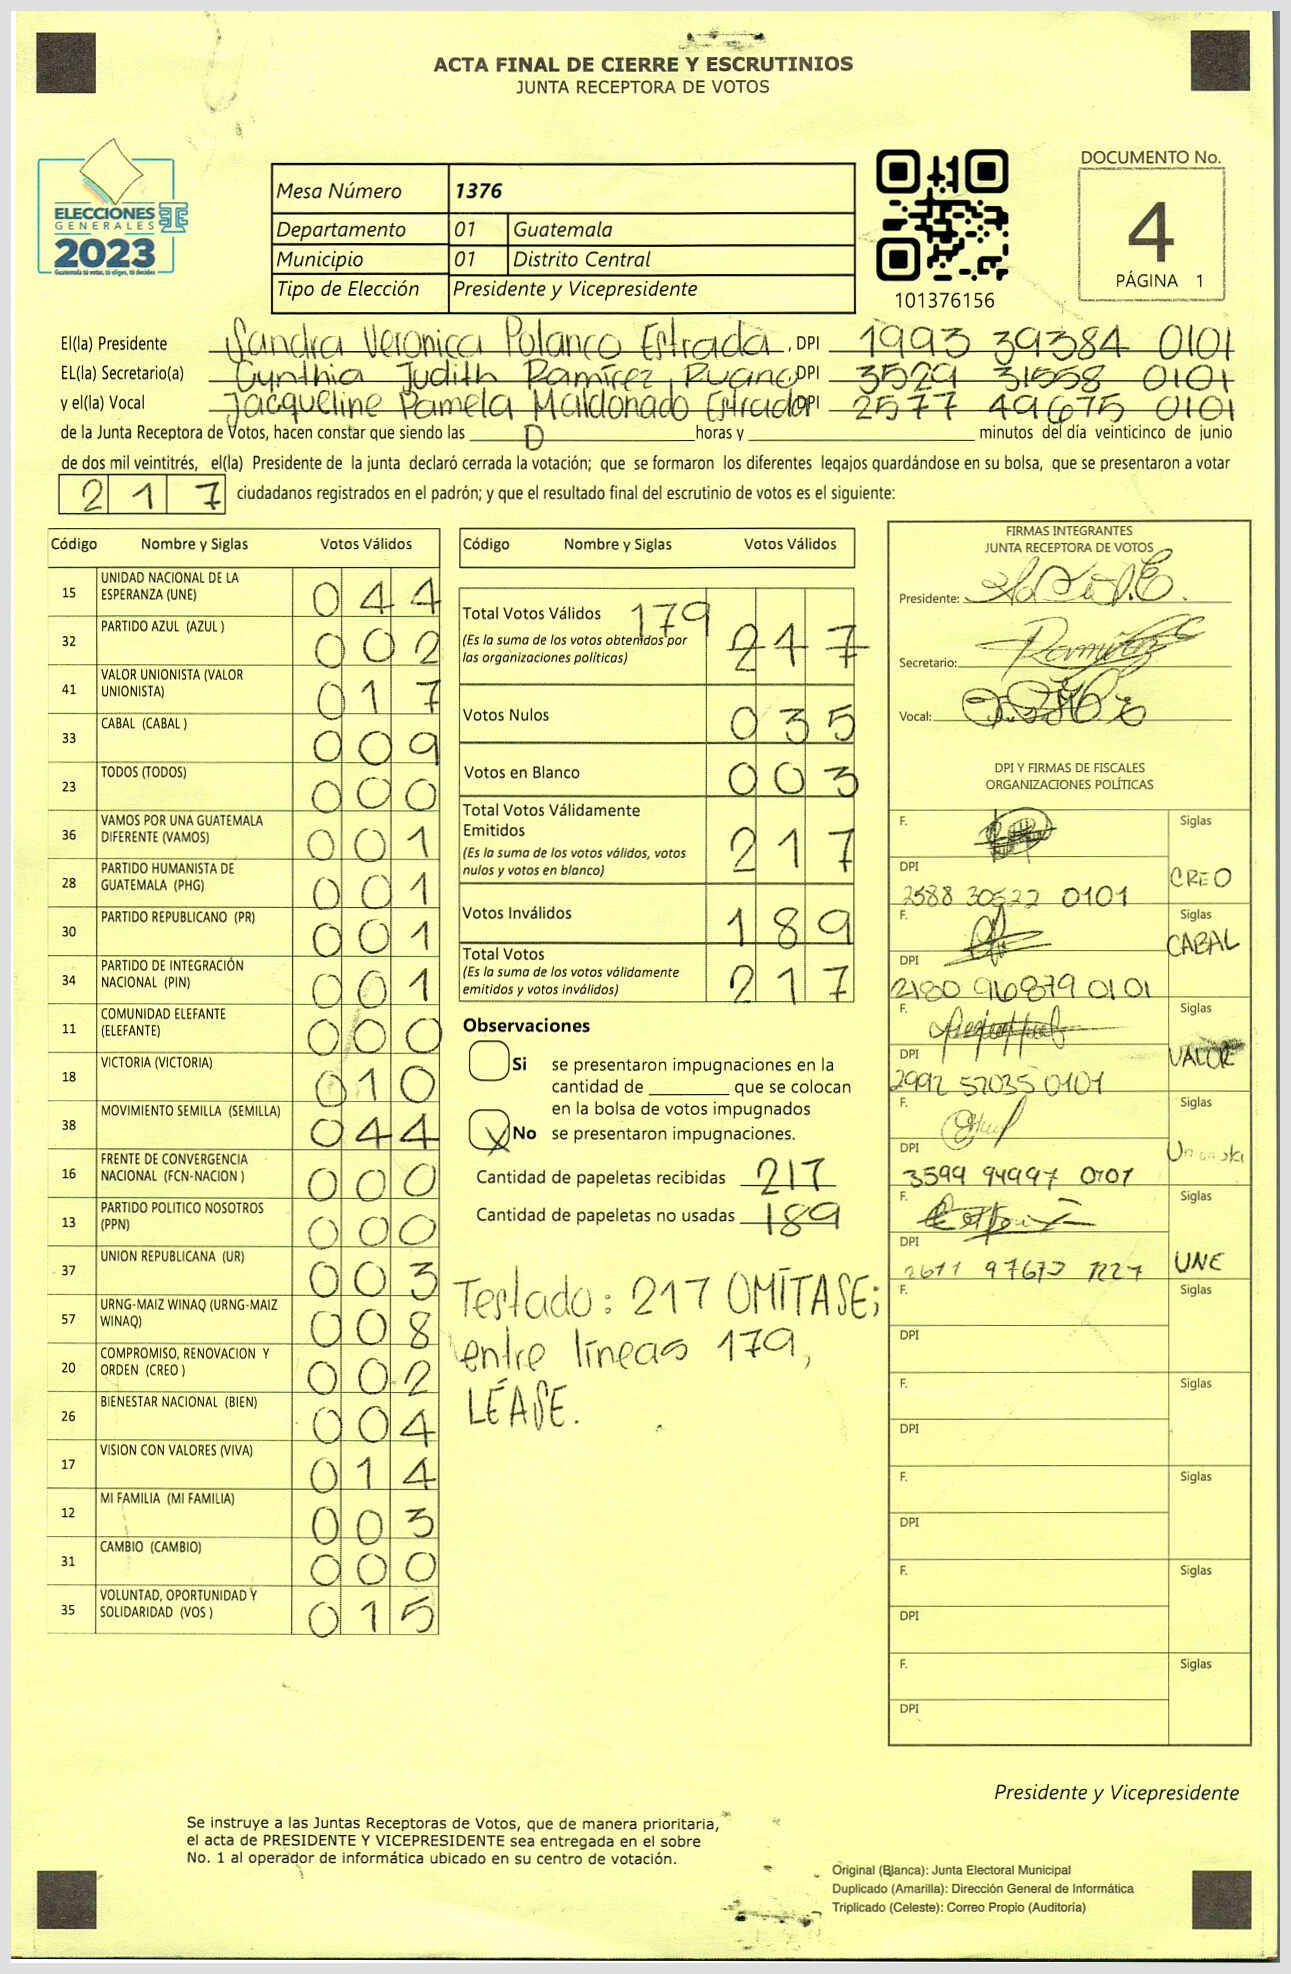 ACTA FINAL DE CIERRE Y ESCRUTINIOS
JUNTA RECEPTORA DE VOTOS
ELECCIONES
GENERALES
2023
Guatemala tú votas, tú eliges, tú decides
Mesa Número 1376
Departamento 01 Guatemala
Municipio 01 Distrito Central
Tipo de Elección Presidente y Vicepresidente
101376156
DOCUMENTO No.
4
PÁGINA 1
El(la) Presidente Sandra Veronica Polanco Estrada, DPI 1993 39384 0101
EL(la) Secretario(a) Cynthia Judith Ramírez Ruano DPI 3529 31558 0101
y el(la) Vocal Jacqueline Pamela Maldonado Estrada DPI 2577 49675 0101
de la Junta Receptora de Votos, hacen constar que siendo las horas y minutos del día veinticinco de junio
de dos mil veintitrés, el(la) Presidente de la junta declaró cerrada la votación; que se formaron los diferentes legajos guardándose en su bolsa, que se presentaron a votar
217 ciudadanos registrados en el padrón; y que el resultado final del escrutinio de votos es el siguiente:
Código Nombre y Siglas Votos Válidos
15 UNIDAD NACIONAL DE LA ESPERANZA (UNE) 044
32 PARTIDO AZUL (AZUL ) 002
41 VALOR UNIONISTA (VALOR UNIONISTA) 017
33 CABAL (CABAL ) 009
23 TODOS (TODOS) 000
36 VAMOS POR UNA GUATEMALA DIFERENTE (VAMOS) 001
28 PARTIDO HUMANISTA DE GUATEMALA (PHG) 001
30 PARTIDO REPUBLICANO (PR) 001
34 PARTIDO DE INTEGRACIÓN NACIONAL (PIN) 001
11 COMUNIDAD ELEFANTE (ELEFANTE) 000
18 VICTORIA (VICTORIA) 010
38 MOVIMIENTO SEMILLA (SEMILLA) 044
16 FRENTE DE CONVERGENCIA NACIONAL (FCN-NACION ) 000
13 PARTIDO POLITICO NOSOTROS (PPN) 000
37 UNION REPUBLICANA (UR) 003
57 URNG-MAIZ WINAQ (URNG-MAIZ WINAQ) 008
20 COMPROMISO, RENOVACION Y ORDEN (CREO ) 002
26 BIENESTAR NACIONAL (BIEN) 004
17 VISION CON VALORES (VIVA) 014
12 MI FAMILIA (MI FAMILIA) 003
31 CAMBIO (CAMBIO) 000
35 VOLUNTAD, OPORTUNIDAD Y SOLIDARIDAD (VOS ) 015
Código Nombre y Siglas Votos Válidos
Total Votos Válidos 179 217
(Es la suma de los votos obtenidos por
las organizaciones políticas)
Votos Nulos 035
Votos en Blanco 003
Total Votos Válidamente
Emitidos 217
(Es la suma de los votos válidos, votos
nulos y votos en blanco)
Votos Inválidos 189
Total Votos 217
(Es la suma de los votos válidamente
emitidos y votos inválidos)
Observaciones
Si se presentaron impugnaciones en la
cantidad de que se colocan
en la bolsa de votos impugnados
X No se presentaron impugnaciones.
Cantidad de papeletas recibidas 217
Cantidad de papeletas no usadas 189
Testado: 217 OMÍTASE;
entre líneas 179,
LÉASE.
FIRMAS INTEGRANTES
JUNTA RECEPTORA DE VOTOS
Presidente:
Secretario:
Vocal:
DPI Y FIRMAS DE FISCALES
ORGANIZACIONES POLÍTICAS
F. Siglas
DPI CREO
2588 30522 0101
F. Siglas
DPI CABAL
2180 96879 0101
F. Siglas
DPI VALOR
2992 57035 0101
F. Siglas
DPI
3599 94997 0101
F. Siglas
DPI UNE
F. Siglas
DPI
F. Siglas
DPI
F. Siglas
DPI
F. Siglas
DPI
F. Siglas
DPI
Presidente y Vicepresidente
Se instruye a las Juntas Receptoras de Votos, que de manera prioritaria,
el acta de PRESIDENTE Y VICEPRESIDENTE sea entregada en el sobre
No. 1 al operador de informática ubicado en su centro de votación.
Original (Blanca): Junta Electoral Municipal
Duplicado (Amarilla): Dirección General de Informática
Triplicado (Celeste): Correo Propio (Auditoría)